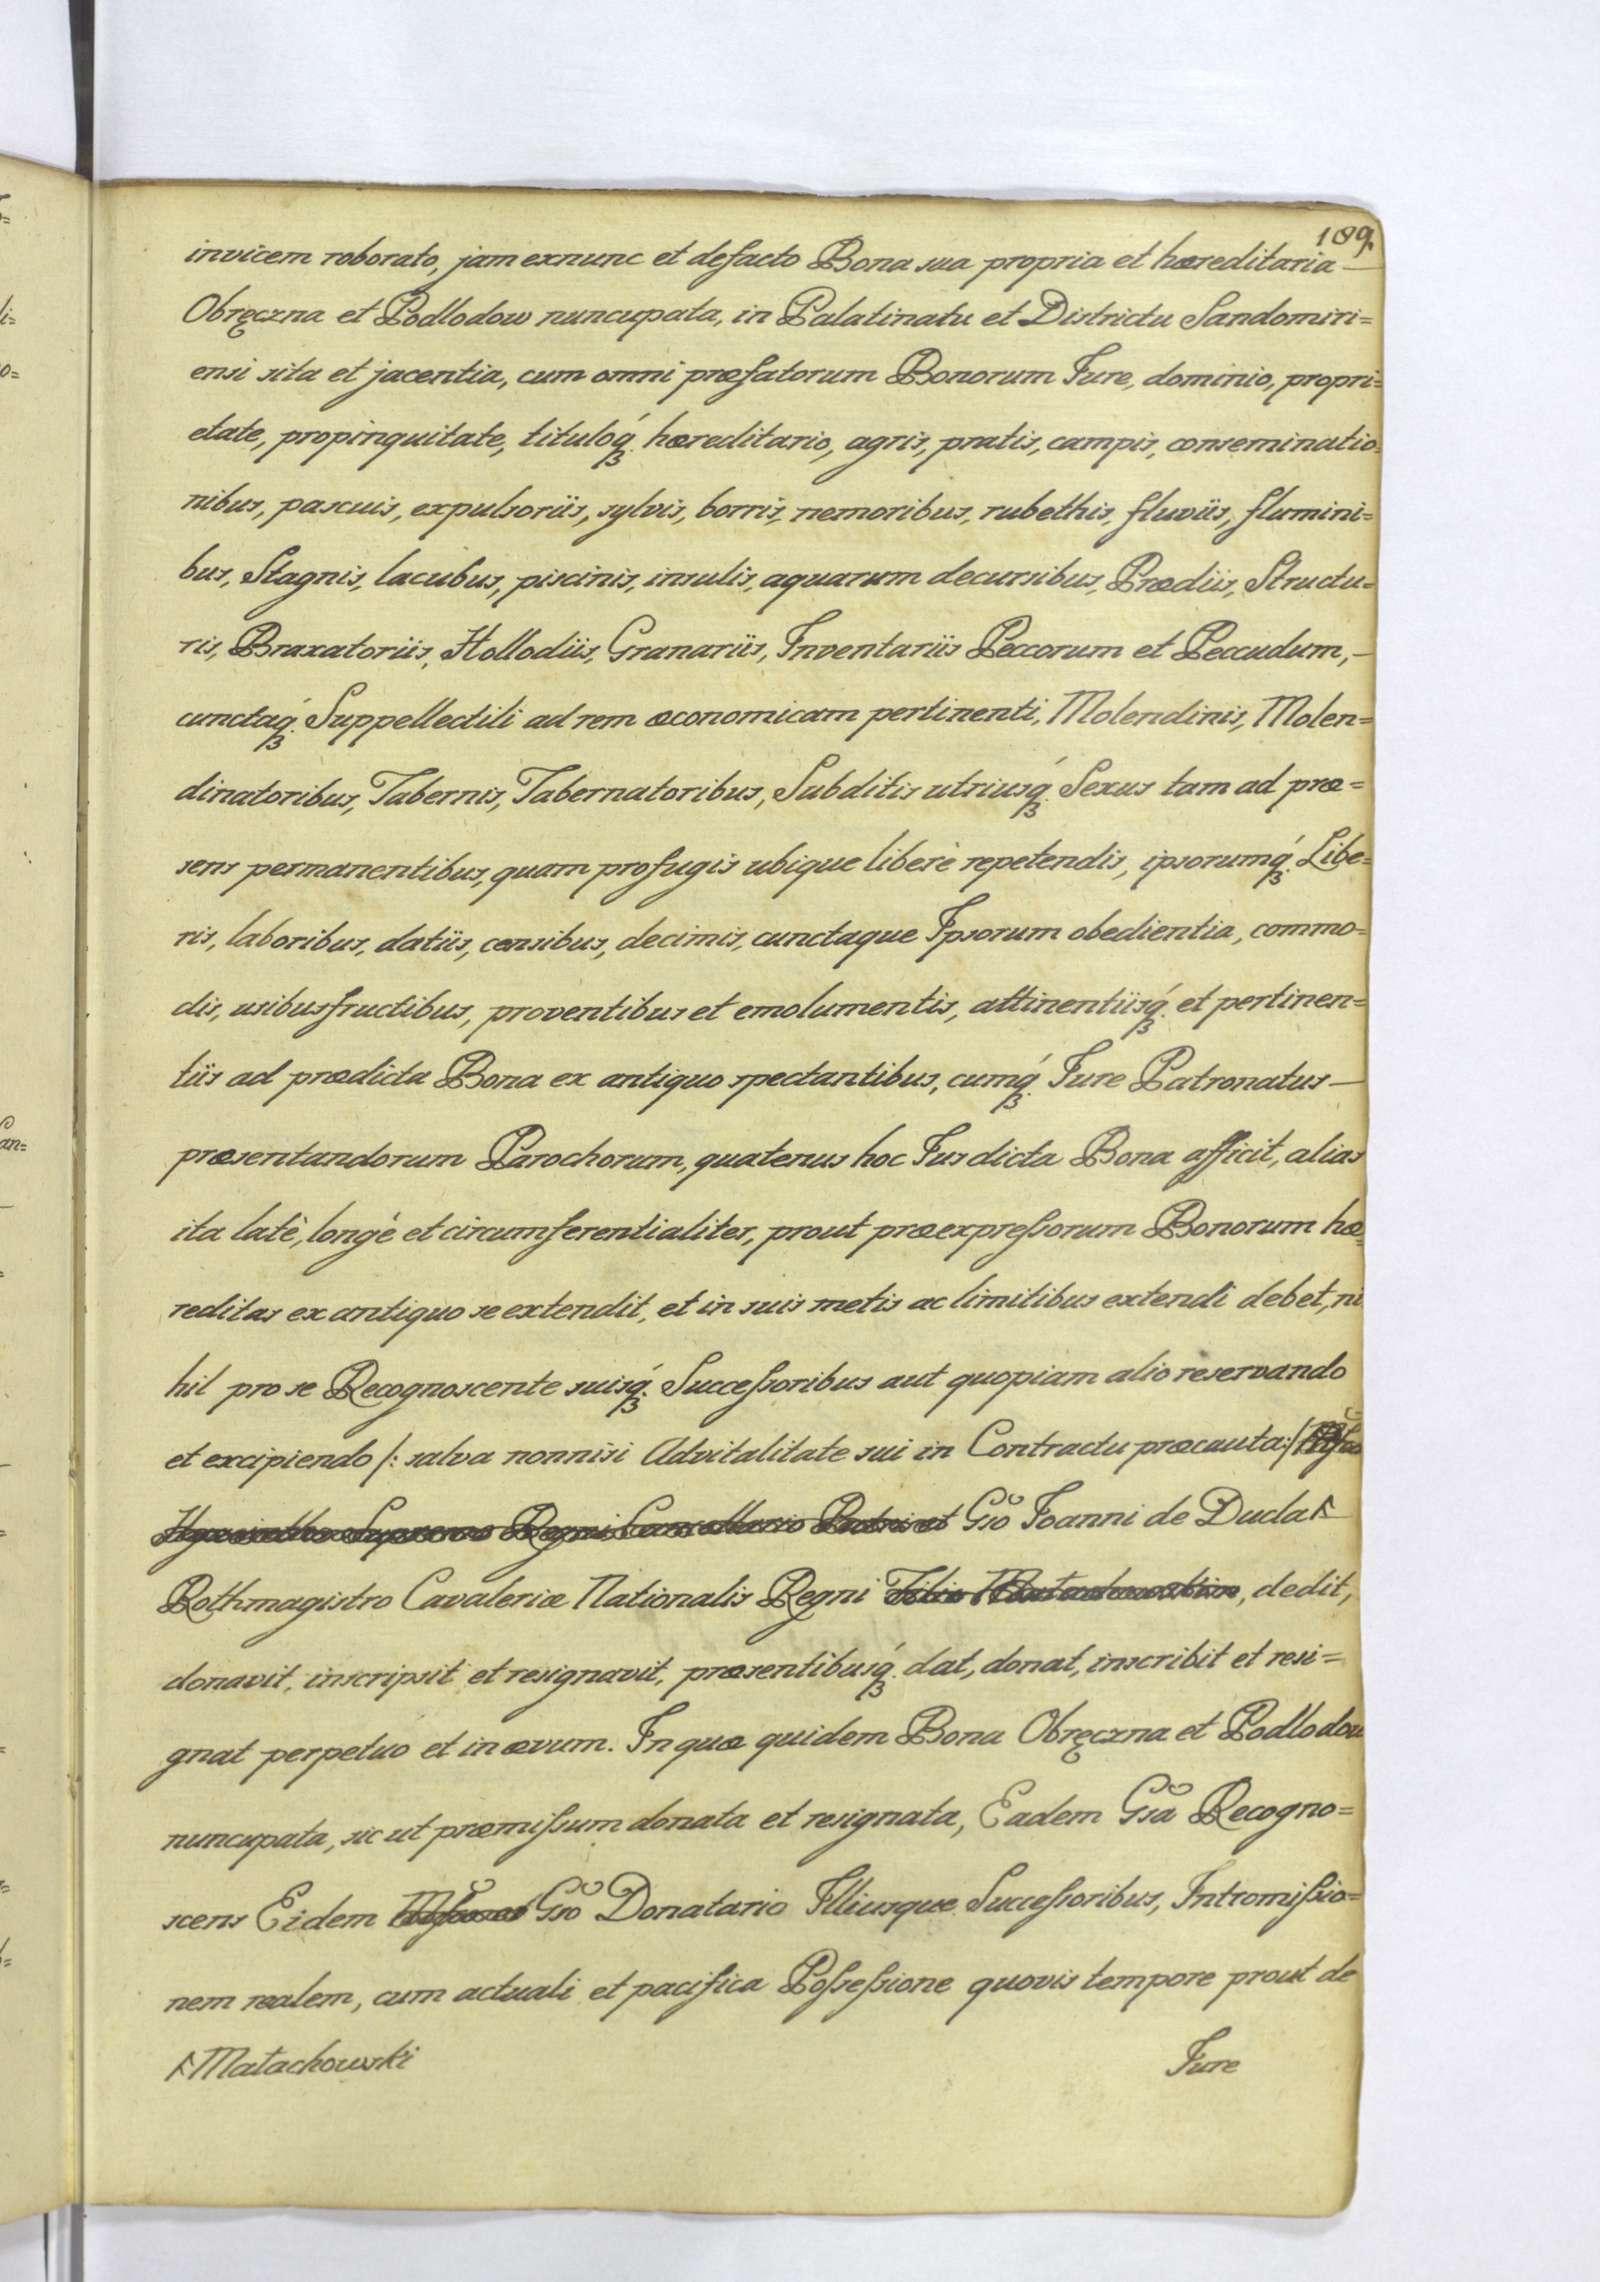 189.
invicem roborato, jam exnunc et defacto Bona sua propria et hæreditaria —
Obręczna et Podlodow nuncupata, in Palatinatu et Districtu Sandomiri=
ensi sita et jacentia, cum omni præfatorum Bonorum Jure, dominio, propri=
etate, propinquitate, tituloq́ʒ hæreditario, agris, pratis, campis, conseminatio=
nibus, pascuis, expulsoriis, sylvis, borris, nemoribus, rubethis, fluviis, flumini=
bus, Stagnis, lacubus, piscinis, insulis, aquarum decursibus, Prædiis, Structu=
ris, Braxatoriis, Hollodiis, Granariis, Inventariis Peccorum et Peccudum, —
cunctaq́ʒ Suppellectili ad rem œconomicam pertinenti, Molendinis, Molen=
dinatoribus, Tabernis, Tabernatoribus, Subditis utriusq́ʒ Sexus tam ad præ=
sens permanentibus, quam profugis ubique liberè repetendis, ipsorumq́ʒ Libe=
ris, laboribus, datiis, censibus, decimis, cunctaque Ipsorum obedientia, commo=
dis, usibusfructibus, proventibus et emolumentis, attinentiisq́ʒ et pertinen=
tiis ad prædicta Bona ex antiquo spectantibus, cumq́ʒ Jure Patronatus —
præsentandorum Parochorum, quatenus hoc Jus dicta Bona afficit, alias
ita latè, longè et circumferentialiter, prout præexpreſsorum Bonorum hæ=
reditas ex antiquo se extendit, et in suis metis ac limitibus extendi debet, ni
hil pro se Recognoscente suisq́ʒ Succeſsoribus aut quopiam alio reservando
et excipiendo /: salva nonnisi Advitalitate sui in Contractu præcauta :/
Hyacintho Supremo Regni Cancellario Patri et Gso Joanni de Ducla ꟻ
Rothmagistro Cavaleriæ Nationalis Regni Filio Małachowskim, dedit,
donavit, inscripsit et resignavit, præsentibusq́ʒ dat, donat, inscribit et resi=
gnat perpetuo et in ævum. In quæ quidem Bona Obręczna et Podlodow
nuncupata, sic ut præmiſsum donata et resignata, Eadem Gsa Recogno=
scens Eidem Gso Donatario Illiusque Succeſsoribus, Intromiſsio=
nem realem, cum actuali et pacifica Poſseſsione quovis tempore prout de
ꟻ Małachowski
Jure